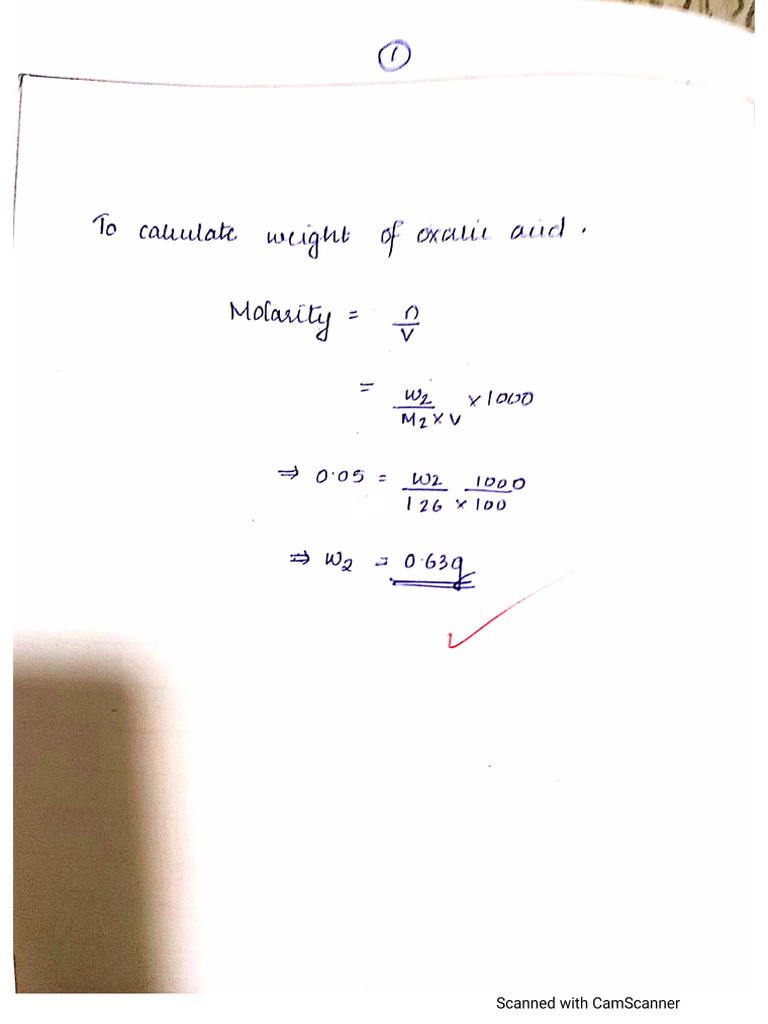 1
To calculate weight of oxalic acid.
Molarity = n/V
= W2/M2 x V x 1000
⇒ 0.05 = W2/126 x 1000/100
⇒ W2 = 0.63g
Scanned with CamScanner